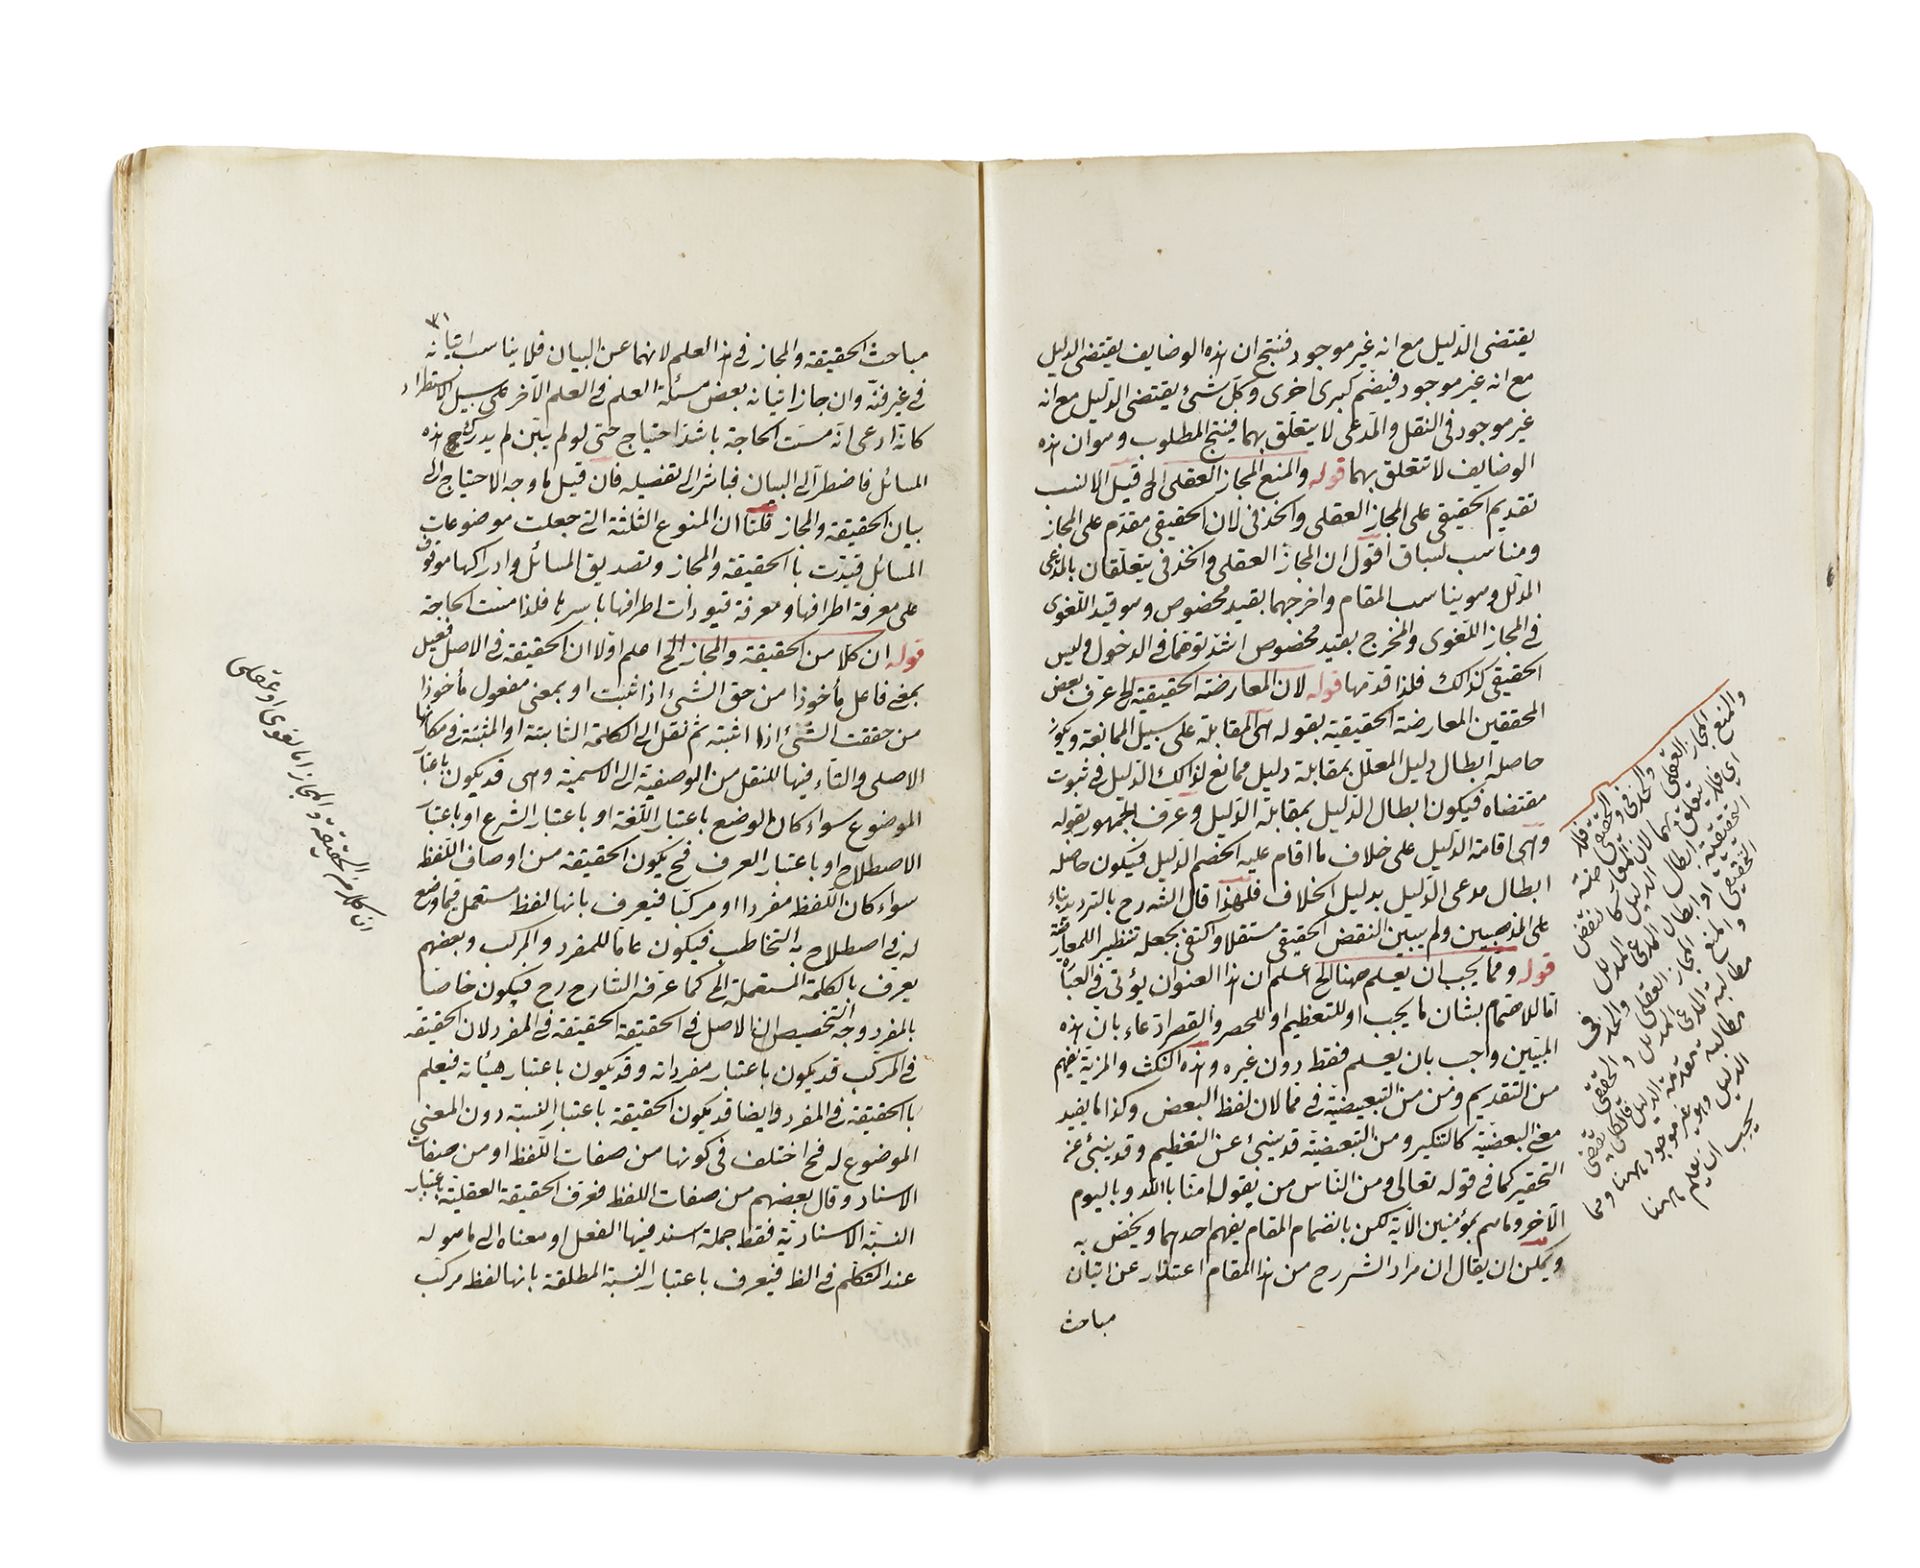 يقتضى الدليل مع انه غير موجود فنتج ان هذه الوضايف يقتضى الدليل
مع انه غير موجود فيضم كبرى اخرى وكل شئ يقتضى الدليل مع انه
غير موجود فى النقل والمدعى لا يتعلق بهما فينتج المطلوب وهو ان هذه
الوضايف لا تتعلق بهما قوله والمنع المجاز العقلى الخ قيل الانسب
تقديم الحقيقى على المجاز العقلى والحذفى لان الحقيقى مقدم على المجاز
ومناسب لسباق اقول ان المجاز العقلى والحذفى يتعلقان بالمدعى
المدلل وهو يناسب المقام واخرجهما بقيد مخصوص وهو قيد اللغوى
فى المجاز اللغوى والمخرج بقيد مخصوص اشد توهما فى الدخول وليس
الحقيقى كذالك فلذا قدمها قوله لان المعارضة الحقيقية الخ عرف بعض
المحققين المعارضة الحقيقية بقوله هى المقابلة على سبيل الممانعة ويكون
حاصله ابطال دليل المعلل بمقابلة دليل ممانع لذالك الدليل فى ثبوت
مقتضاه فيكون ابطال الدليل بمقابلة الدليل وعرف الجمهور بقوله
وهى اقامة الدليل على خلاف ما اقام عليه الخصم الدليل فيكون حاصله
ابطال مدعى الدليل بدليل الخلاف فلهذا قال الشارح بالترديد بناء
على المذهبين ولم يبين النقض الحقيقى مستقلا واكتفى بجعله تنظيرا للمعارضة
قوله ومما يجب ان يعلم ههنا الخ اعلم ان هذا العنوان يؤتى فى العبارة
اما للاهتمام بشان ما يجب او للتعظيم او للحصر والقصر ادعاء بان هذه
المبين واجب بان يعلم فقط دون غيره وهذه النكت والمزية يفهم
من التقديم ومن من التبعيضية فى مما لان لفظ البعض وكذا ما يفيد
معنى البعضية كالتنكير ومن التبعيضية قد ينبئ عن التعظيم وقد ينبئ عن
التحقير كما فى قوله تعالى ومن الناس من يقول امنا بالله وباليوم
الآخر وما هم بمؤمنين الآية لكن بانضمام المقام يفهم احدهما ويخص به
ويمكن ان يقال ان مراد الشارح من هذا المقام اعتذار عن اتيان
مباحث
والمنع المجاز العقلى
والحذفى والحقيقى
مطالبة الدليل
وهو غير موجود ههنا ومما
يجب ان يعلم ههنا
٣١
مباحث الحقيقة والمجاز فى هذا العلم لانهما عن البيان فلا يناسب اتيانه
فى غير فنه وان جاز اتيانه بعض مسئلة العلم فى العلم الآخر على سبيل الاستطراد
كانه ادعى انه مست الحاجة باشد احتياج حتى لو لم يبين لم يدرك هذه
المسائل فاضطر الى البيان فباشر الى تفصيله فان قيل ما وجه الاحتياج الى
بيان الحقيقة والمجاز قلنا ان المنوع الثلثة التى جعلت موضوعات
المسائل قيدت بالحقيقة والمجاز وتصديق المسائل وادراكها موقوف
على معرفة اطرافها ومعرفة قيودات اطرافها باسرها فلذا مست الحاجة
قوله ان كلا من الحقيقة والمجاز الخ اعلم اولا ان الحقيقة فى الاصل فعيل
بمعنى فاعل مأخوذا من حق الشئ اذا ثبت او بمعنى مفعول مأخوذا
من حققت الشئ اذا اثبته ثم نقل الى الكلمة الثابتة او المثبتة فى مكانها
الاصلى والتاء فيها للنقل من الوصفية الى الاسمية وهى قد يكون باعتبار
الموضوع سواء كان الوضع باعتبار اللغة او باعتبار الشرع او باعتبار
الاصطلاح او باعتبار العرف فح يكون الحقيقة من اوصاف اللفظ
سواء كان اللفظ مفردا او مركبا فيعرف بانها لفظ مستعمل فيما وضع
له فى اصطلاح به التخاطب فيكون عاما للمفرد والمركب وبعضهم
يعرف بالكلمة المستعملة الخ كما عرفه الشارح رح فيكون خاصا
بالمفرد وجه التخصيص ان الاصل فى الحقيقة الحقيقة فى المفرد لان الحقيقة
فى المركب قد يكون باعتبار مفرداته وقد يكون باعتبار هيأته فيعلم
بالحقيقة فى المفرد وايضا قد يكون الحقيقة باعتبار النسبة دون المعنى
الموضوع له فح اختلف فى كونها من صفات اللفظ او من صفات
الاسناد وقال بعضهم من صفات اللفظ فعرف الحقيقة العقلية باعتبار
النسبة الاسنادية فقط جملة اسند فيها الفعل او معناه الى ما هو له
عند المتكلم فى الظ فيعرف باعتبار النسبة المطلقة بانها لفظ مركب
الحقيقة والمجاز اما لغوى او عقلى